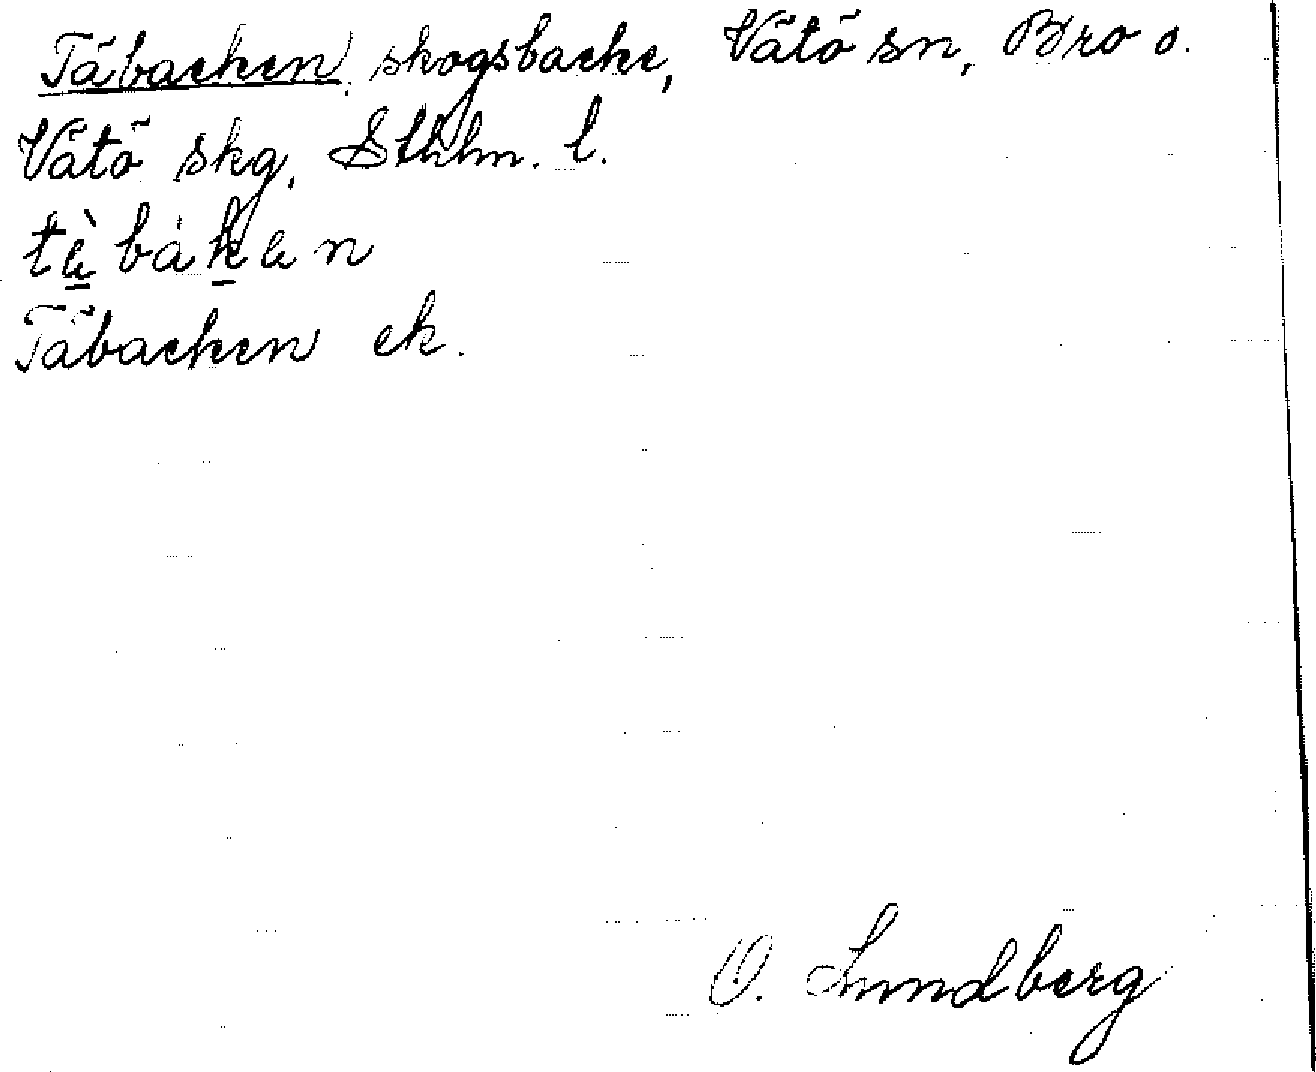 Täbacken, skogsbacke, Vätö sn, Bro o.
Vätö skg, Sthlm. l.
Täbacken ek.
O. Lundberg